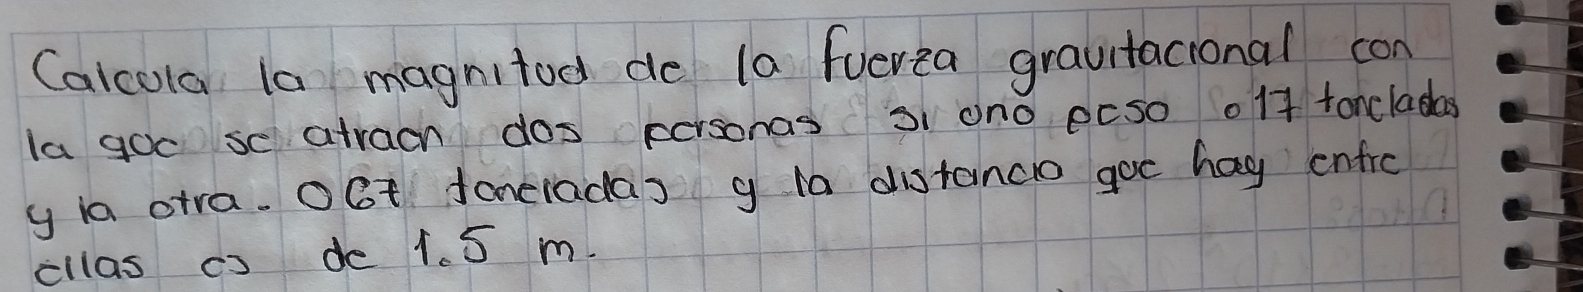 Calcula la magnitud de la fuerza gravitacional con
la que se atraen dos personas si una peso 017 toneladas
y la otra. 067 toneladas y la distancia que hay entre
ellas es de 1.5 m.